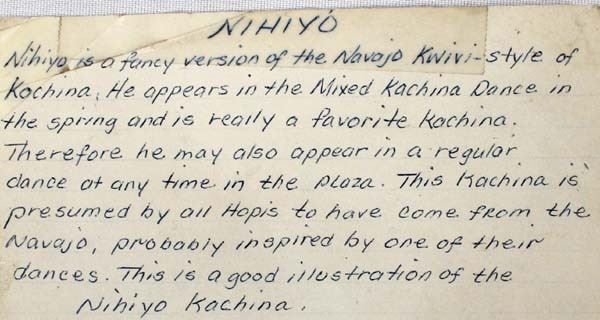 NIHIYO
Nihiyo is a fancy version of the Navajo Kwivi-style of
Kachina. He appears in the Mixed Kachina Dance in
the spring and is really a favorite Kachina.
Therefore he may also appear in a regular
dance at any time in the plaza. This Kachina is
presumed by all Hopis to have come from the
Navajo, probably inspired by one of their
dances. This is a good illustration of the
Nihiyo Kachina.